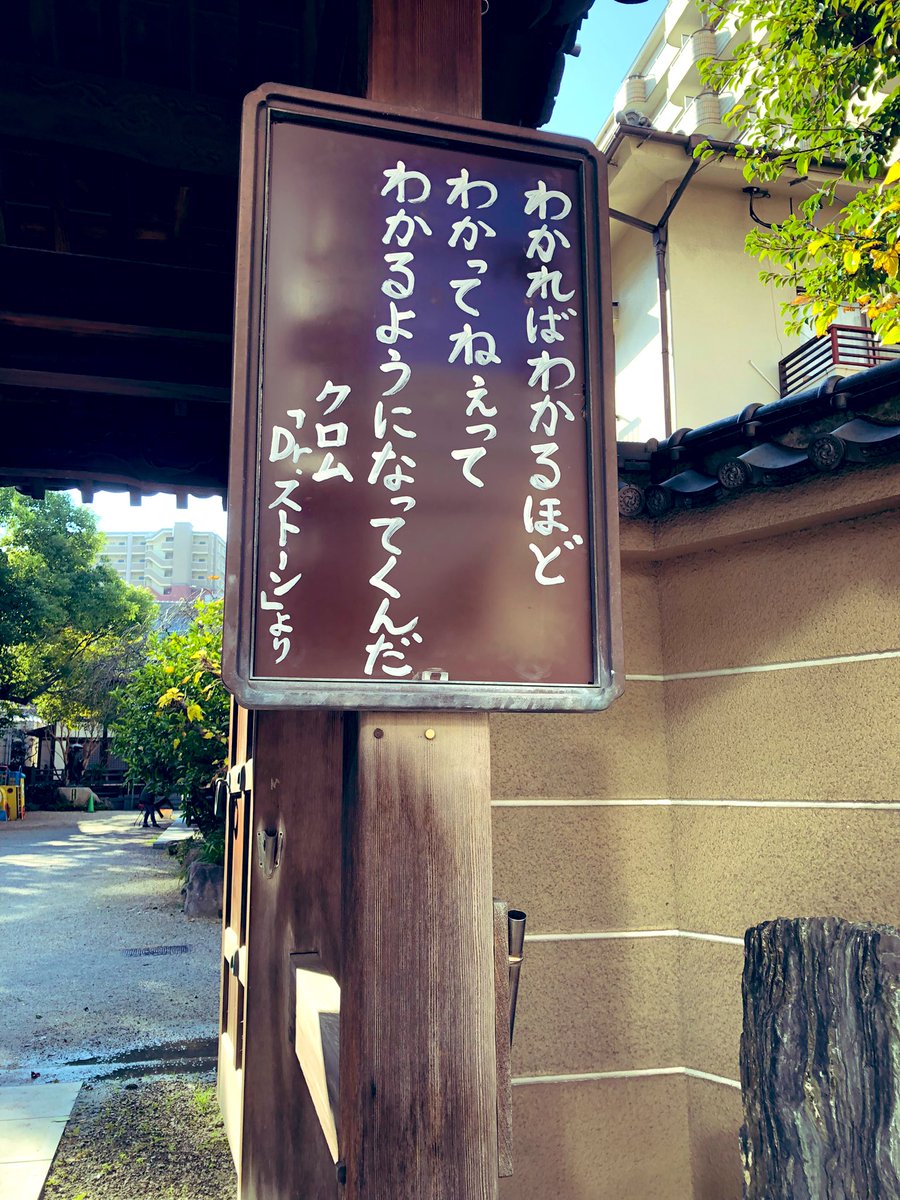 わかればわかるほど
わかってねぇって
わかるようになってくんだ
クロム
「Dr.ストーン」より